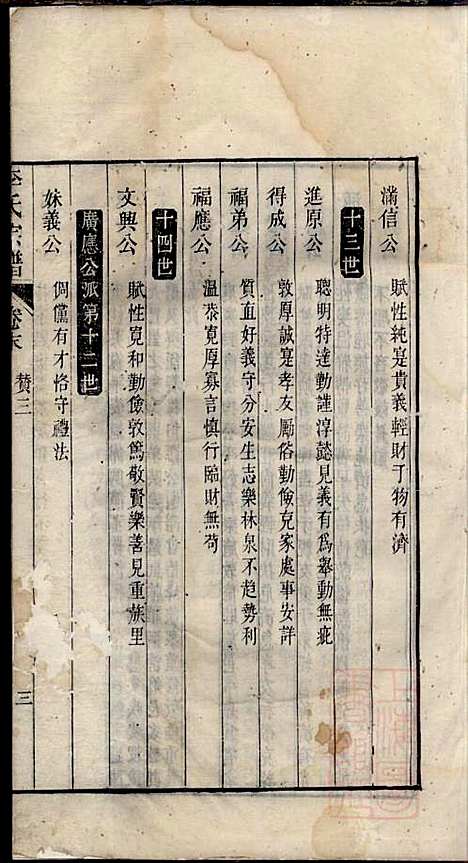 滿信公　賦性純寔貴義輕財于物有濟
十三世
進原公　聰明特達勤謹淳懿見義有為舉動無疵
得成公　敦厚誠寔孝友勵俗勤儉克家處事安詳
福弟公　質直好義守分安生志樂林泉不趋勢利
福應公　溫恭寬厚寡言慎行臨財無苟
十四世
文興公　賦性寬和勤儉敦篤敬賢樂善見重族里
廣應公派第十二世
妹義公　倜儻有才恪守禮法
李氏宗譜　卷末　贊三　三